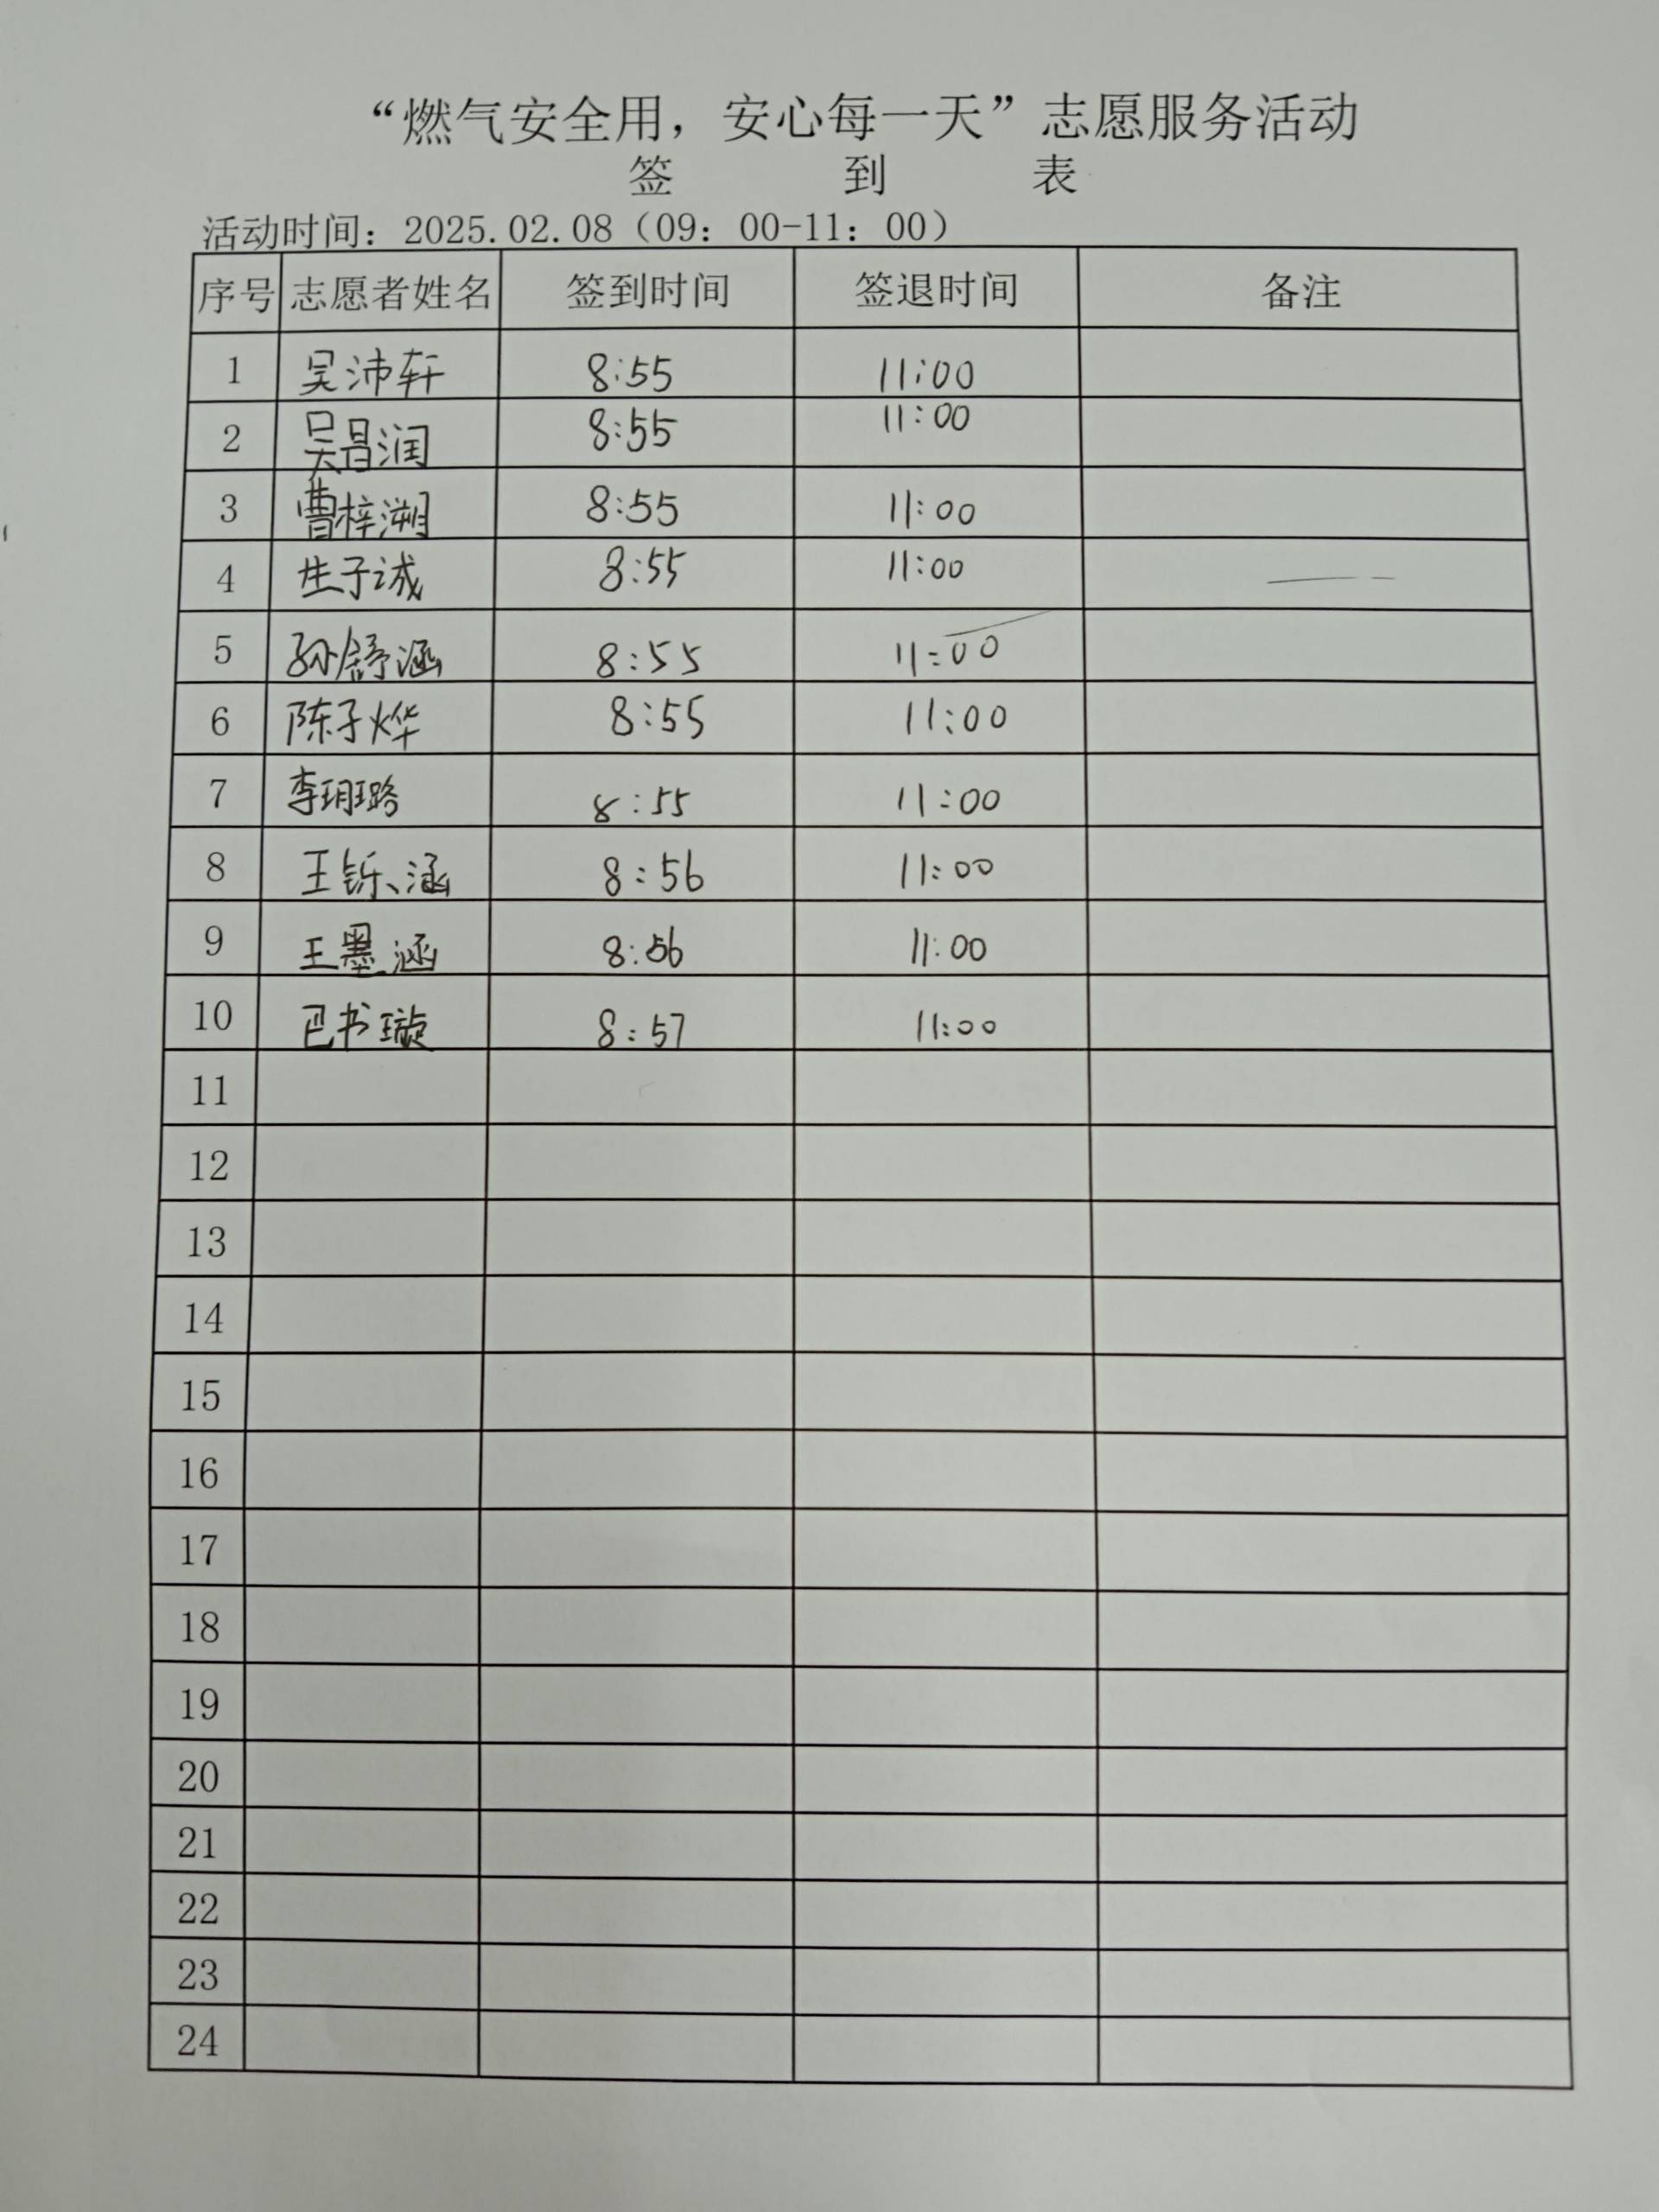 “燃气安全用，安心每一天”志愿服务活动
签 到 表
活动时间：2025.02.08（09：00-11：00）
序号 志愿者姓名 签到时间 签退时间 备注
1 吴沛轩 8:55 11:00
2 吴昌润 8:55 11:00
3 曹梓溯 8:55 11:00
4 生子诚 8:55 11:00
5 孙舒涵 8:55 11:00
6 陈子烨 8:55 11:00
7 李玥璐 8:55 11:00
8 王铄涵 8:56 11:00
9 王墨涵 8:56 11:00
10 巴书璇 8:57 11:00
11
12
13
14
15
16
17
18
19
20
21
22
23
24